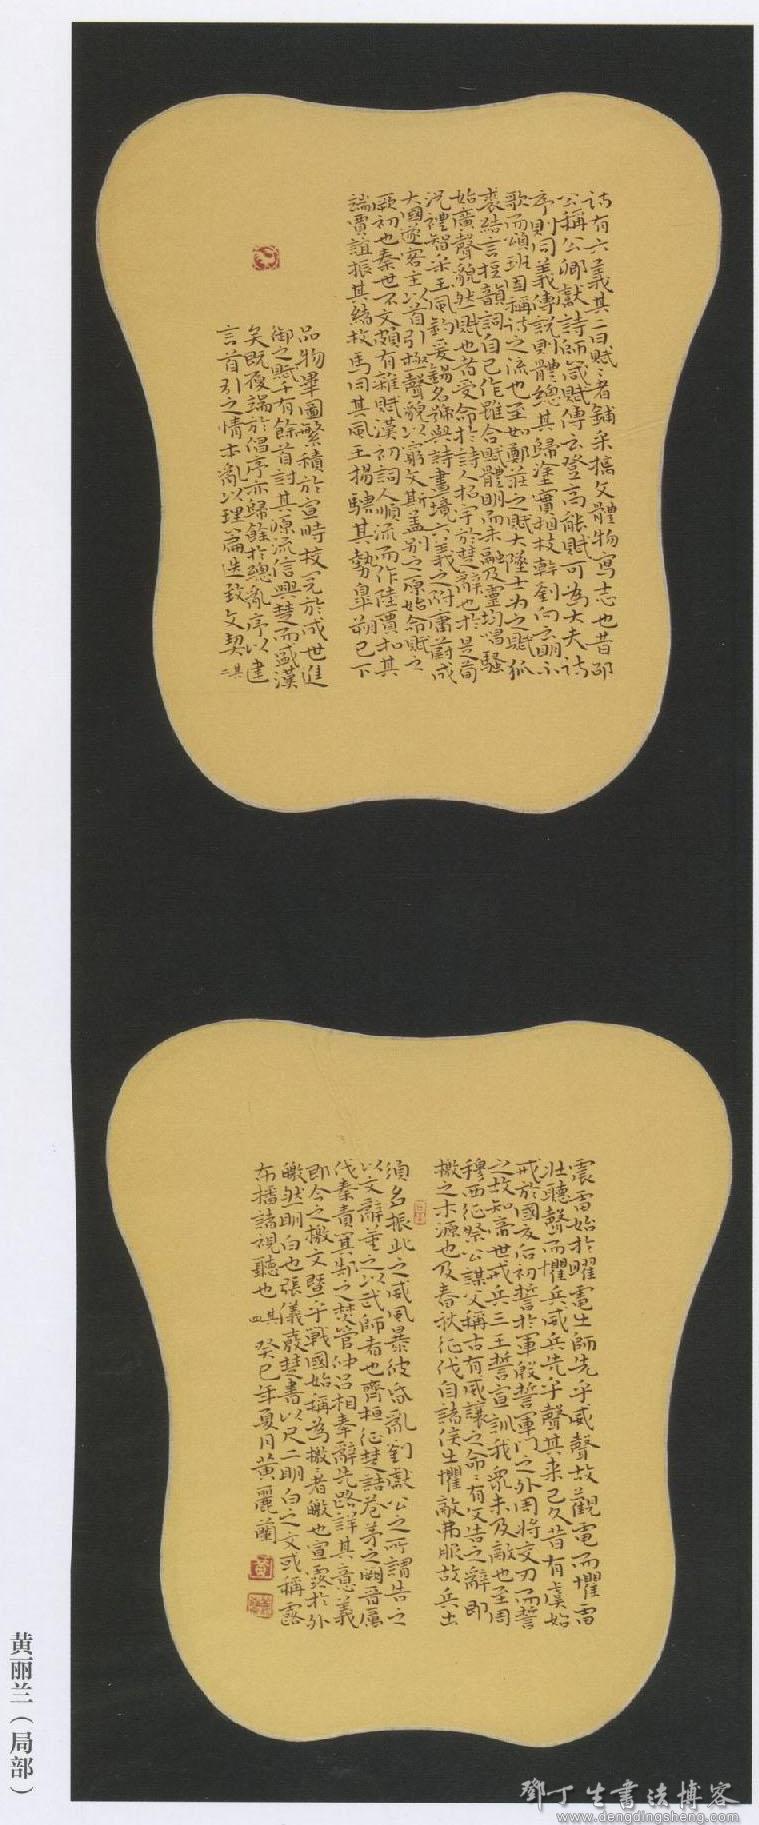 詩有六義其二曰賦〻者鋪采摛文體物寫志也昔邵
公稱公卿獻詩師箴賦傳云登高能賦可為大夫詩
序則同義傳說則體總其歸塗實相枝幹劉向云明不
歌而頌班固稱詩之流也至如鄭莊之賦大隧士為之賦狐
裘結言短韻詞自己作雖合賦體明而未融及靈均唱騷
始廣聲貌然賦也者受命於詩人招字於楚辭也於是荀
況禮智宋玉風釣爰錫名號與詩畫境六義之附庸蔚成
大國遂客主以首引極聲貌以窮文斯蓋別之原始命賦之
厥初也秦世不文頗有雜賦漢初詞人順流而作陸賈扣其
端賈誼振其緒枚馬同其風王揚騁其勢皋朔已下
品物畢圖繁積於宣時校閱於成世進
御之賦千有餘首討其源流信興楚而盛漢
矣既履端於倡序亦歸餘於總亂序以建
言首引之情本亂以理篇迭致文契 其二
震雷始於曜電出師先乎威聲故觀電而懼雷
壯聽聲而懼兵威兵先乎聲其來已久昔有虞始
戒於國夏后初誓於軍殷誓軍門之外周將交刃而誓
之故知帝世戒兵三王誓宣訓我眾未及敵也至周
穆西征祭公謀父稱古有威讓之命〻有文告之辭即
檄之本源也及春秋征伐自諸侯出懼敵弗服故兵出
須名振此之威風暴彼昏亂劉獻公之所謂告之
以文辭董之以武師者也齊桓征楚詰苞茅之闕晉厲
伐秦責箕郜之焚管仲呂相奉辭先路詳其意義
即今之檄文暨乎戰國始稱為檄〻者皦也宣露於外
皦然明白也張儀檄楚書以尺二明白之文或稱露
布播諸視聽也 其四 癸巳年夏月黃麗蘭
黄丽兰（局部）
鄧丁生書法博客
www.dengdingsheng.com